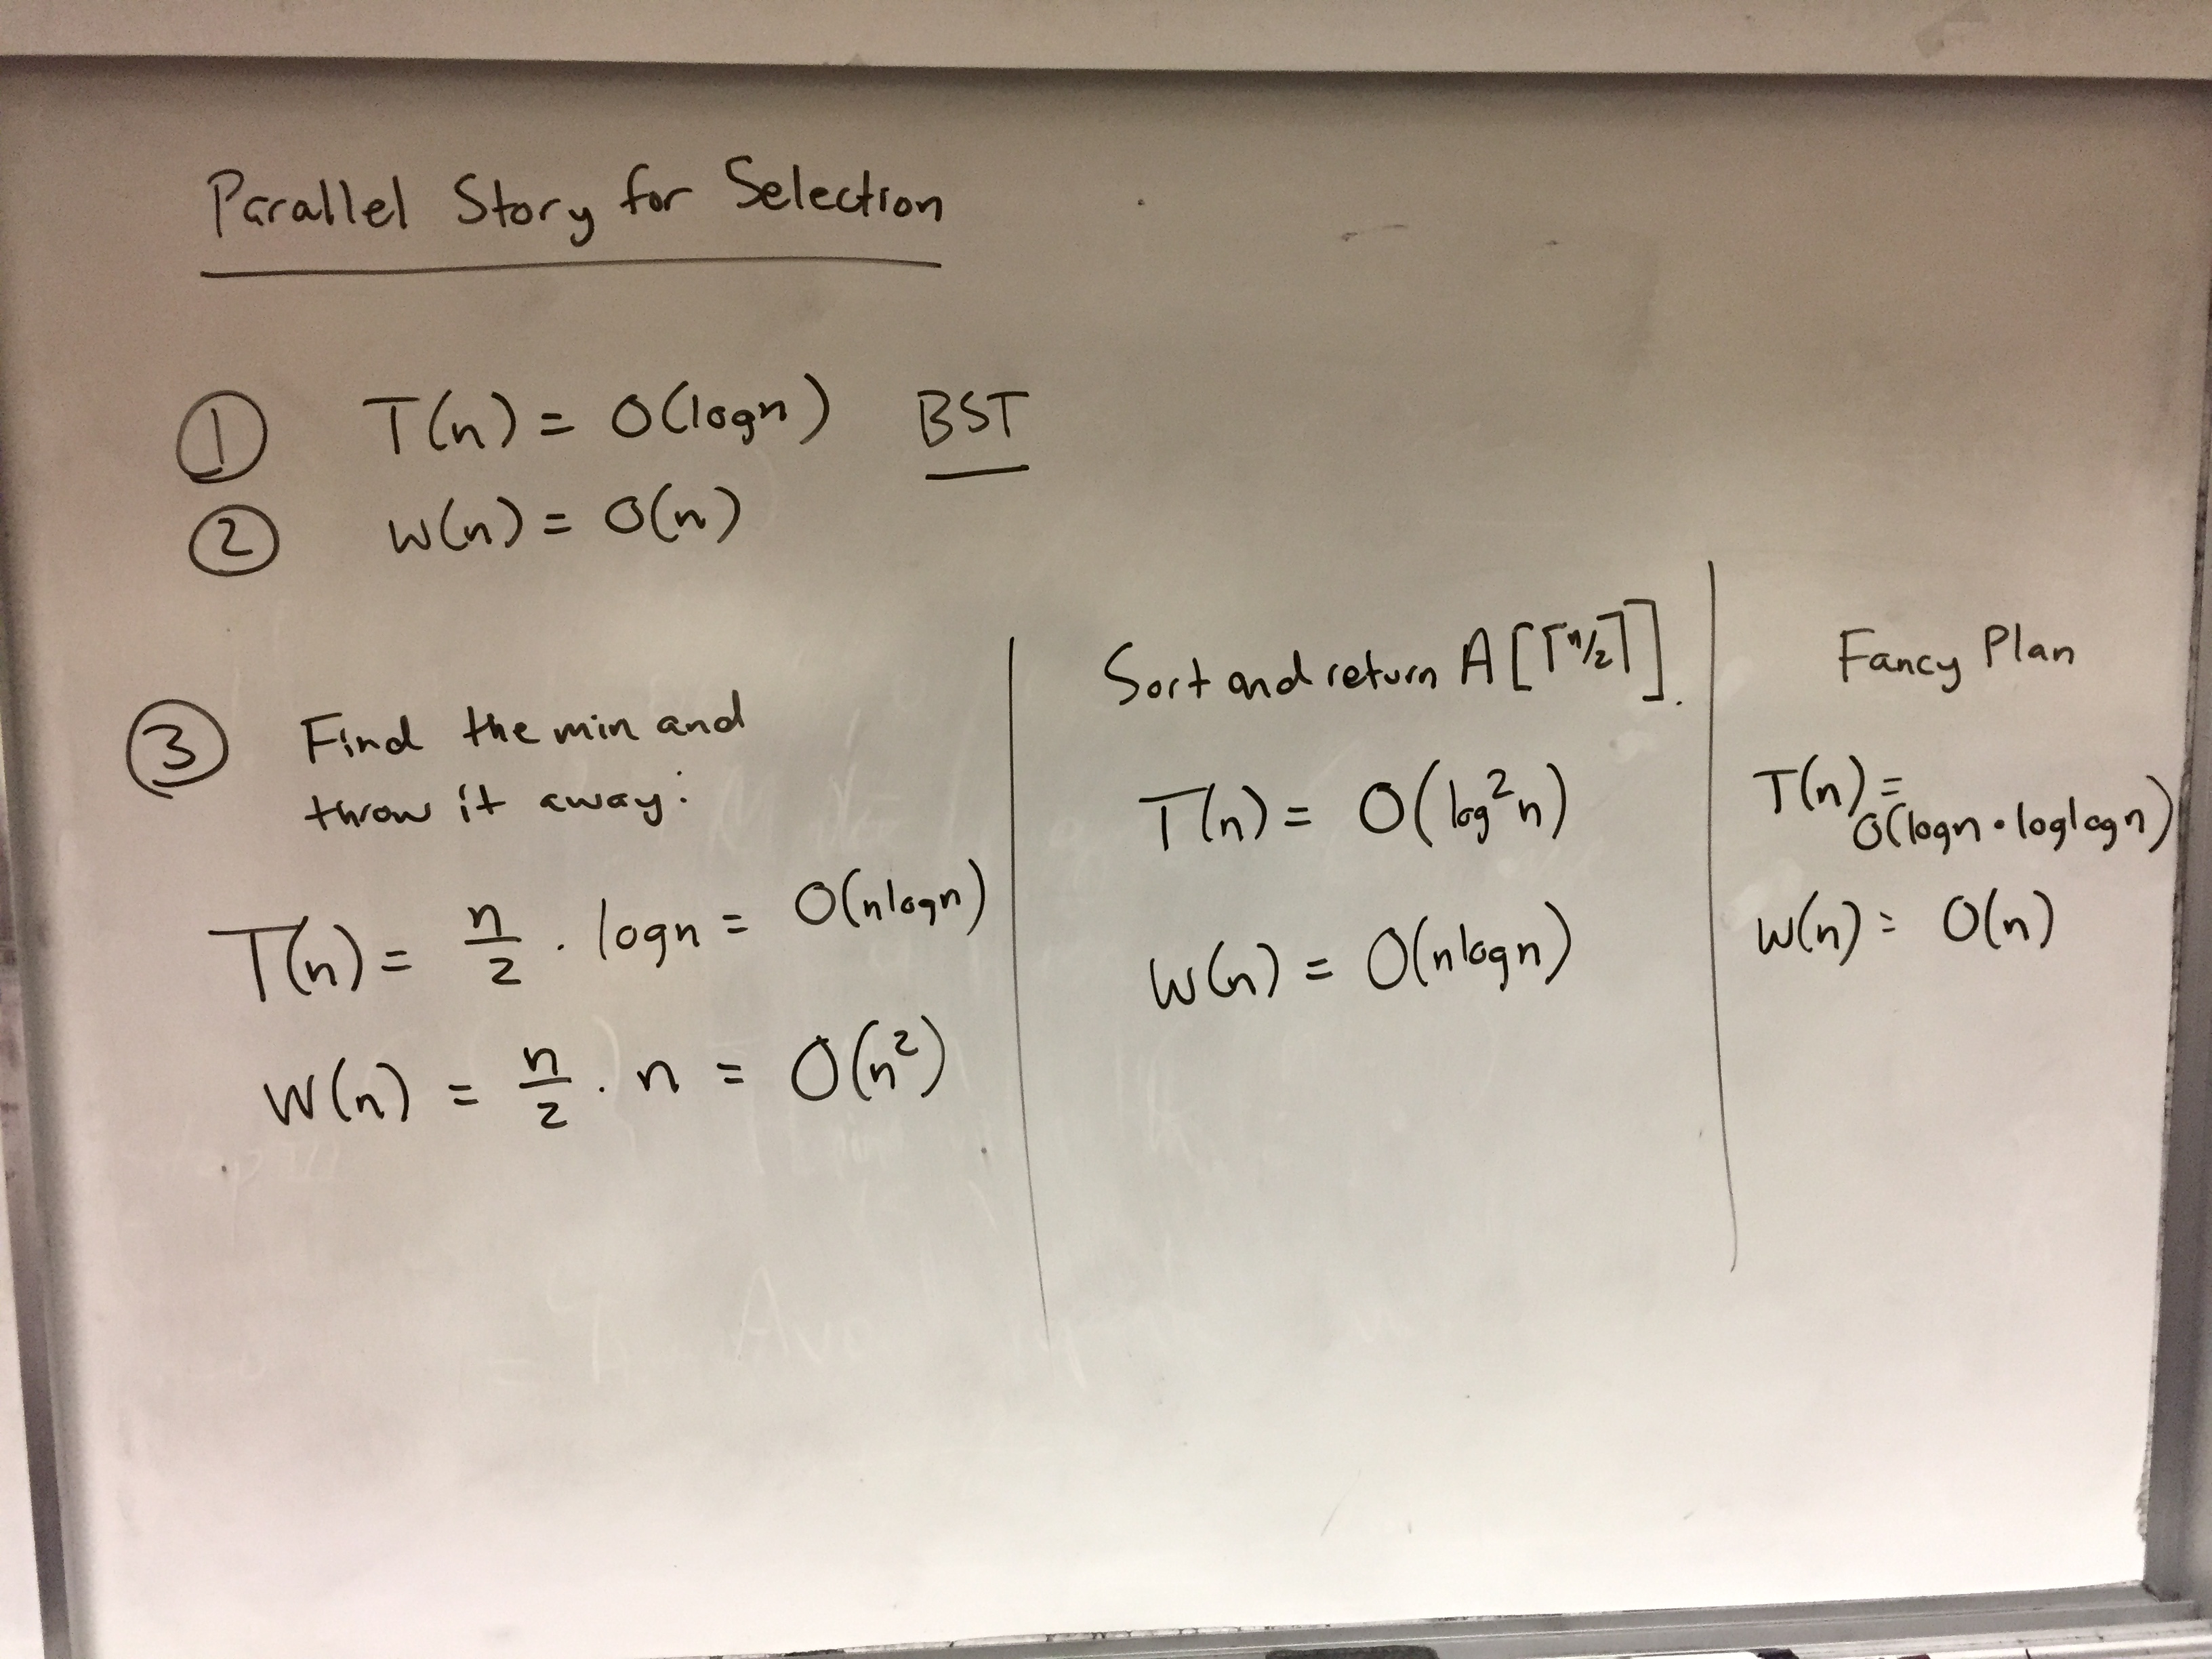 Parallel Story for Selection
① T(n) = O(logn) BST
② W(n) = O(n)
③ Find the min and
throw it away:
T(n) = n/2 · logn = O(nlogn)
W(n) = n/2 · n = O(n²)
Sort and return A[⌈n/2⌉].
T(n) = O(log²n)
W(n) = O(nlogn)
Fancy Plan
T(n) =
O(logn · loglogn)
W(n) = O(n)